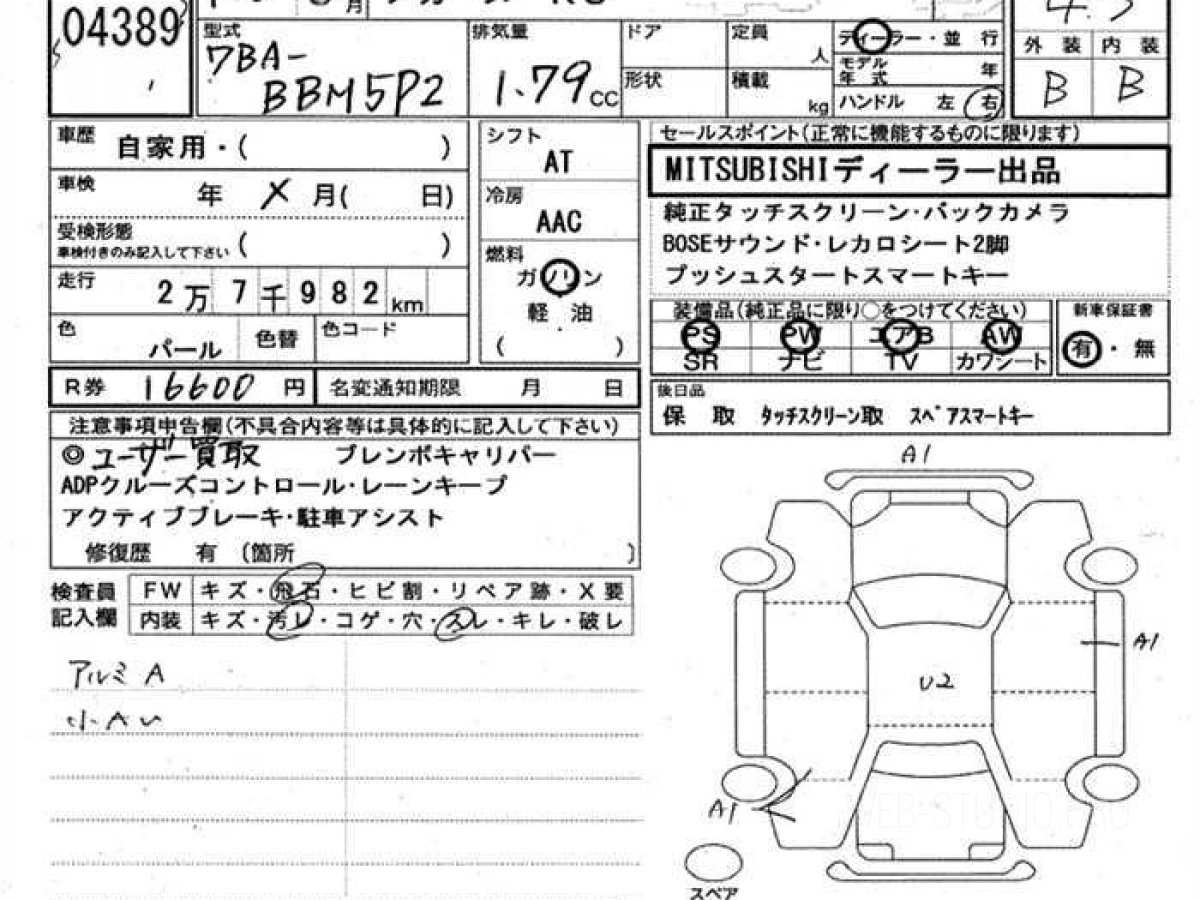 04389
型式
7BA-
BBM5P2
排気量
1.79cc
ドア
形状
定員
人
積載
kg
ディーラー・並 行
モデル
年 式
年
ハンドル 左 右
外 装 内 装
B B
車歴
自家用・( )
車検
年 X 月( 日)
受検形態
車検付きのみ記入して下さい ( )
走行
2万7千982km
色
パール
色替
色コード
シフト
AT
冷房
AAC
燃料
ガソリン
軽・油
( )
セールスポイント(正常に機能するものに限ります)
MITSUBISHIディーラー出品
純正タッチスクリーン・バックカメラ
BOSEサウンド・レカロシート2脚
プッシュスタートスマートキー
装備品(純正品に限り○をつけてください)
PS PW エアB AW
SR ナビ TV カワシート
新車保証書
有・無
R券 16600 円
名変通知期限 月 日
後日品
保 取 タッチスクリーン取 スペアスマートキー
注意事項申告欄(不具合内容等は具体的に記入して下さい)
◎ユーザー買取 ブレンボキャリパー
ADPクルーズコントロール・レーンキープ
アクティブブレーキ・駐車アシスト
修復歴 有 (箇所 )
検査員
記入欄
FW キズ・飛石・ヒビ割・リペア跡・X要
内装 キズ・汚レ・コゲ・穴・スレ・キレ・破レ
アルミ A
小Aい
A1
A1
U2
A1
スペア
WEB-STUDIO.PRO